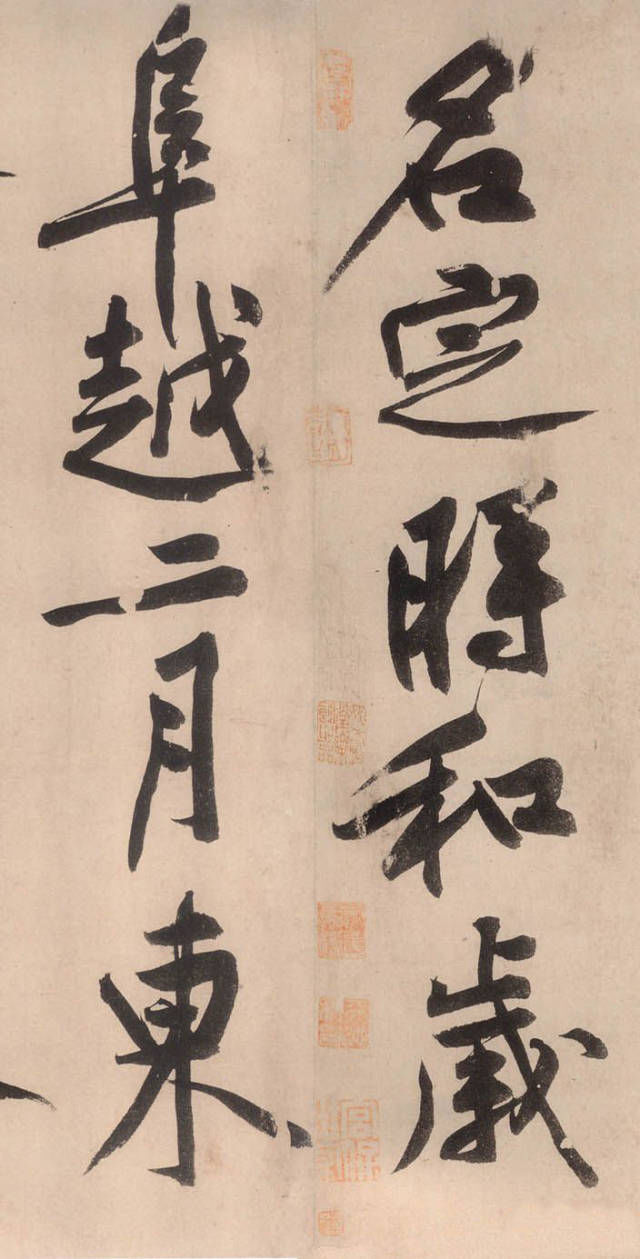 名定時和歲
阜越二月東